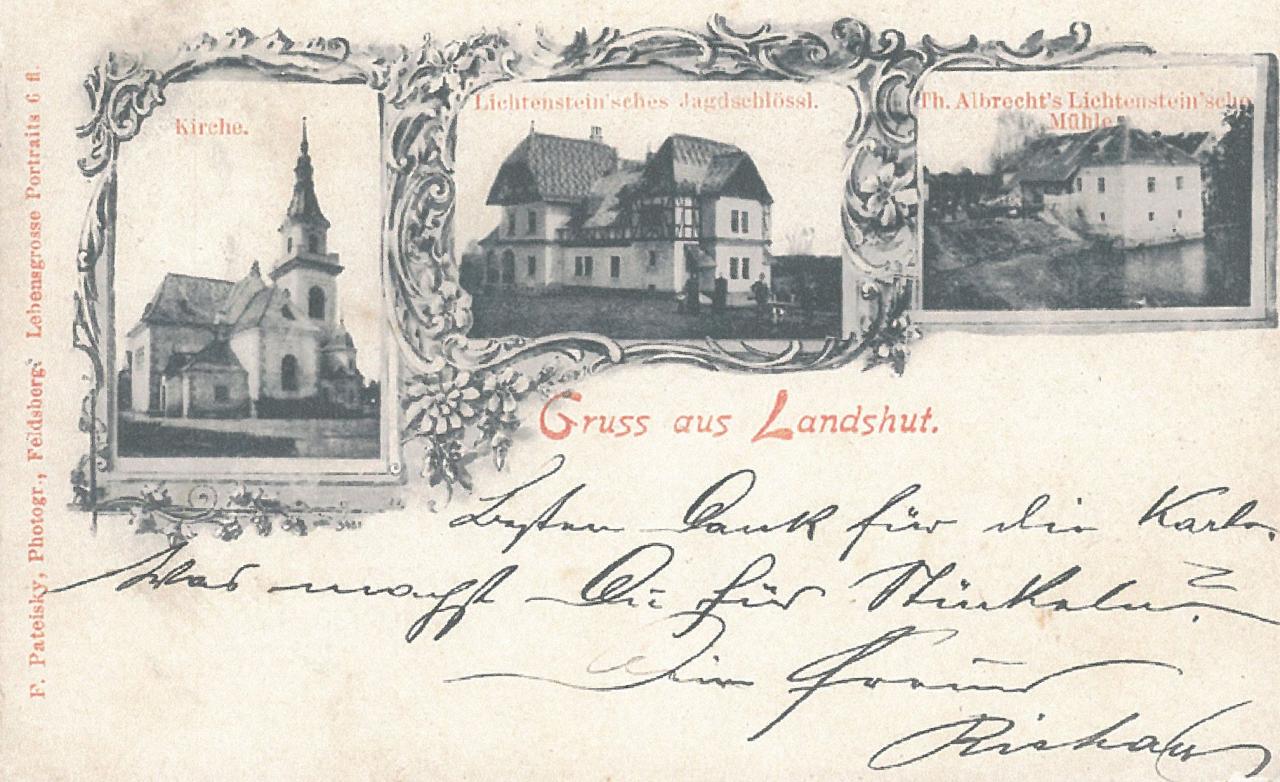 Kirche.
Lichtenstein'sches Jagdschlössl.
Th. Albrecht's Lichtenstein'sche
Mühle
Gruss aus Landshut.
Besten Dank für die Karte.
Was machst Du für Stückeln?
Dein Freund
F. Pateisky, Photogr., Feldsberg. Lebensgrosse Portraits 6 fl.